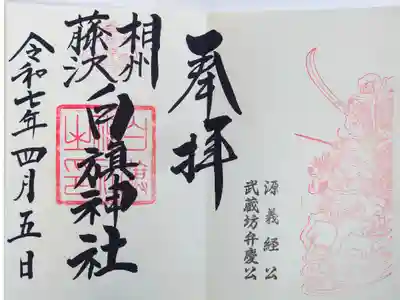 源義経公
武蔵坊弁慶公
奉拝
相州
藤沢
白旗神社
令和七年四月五日